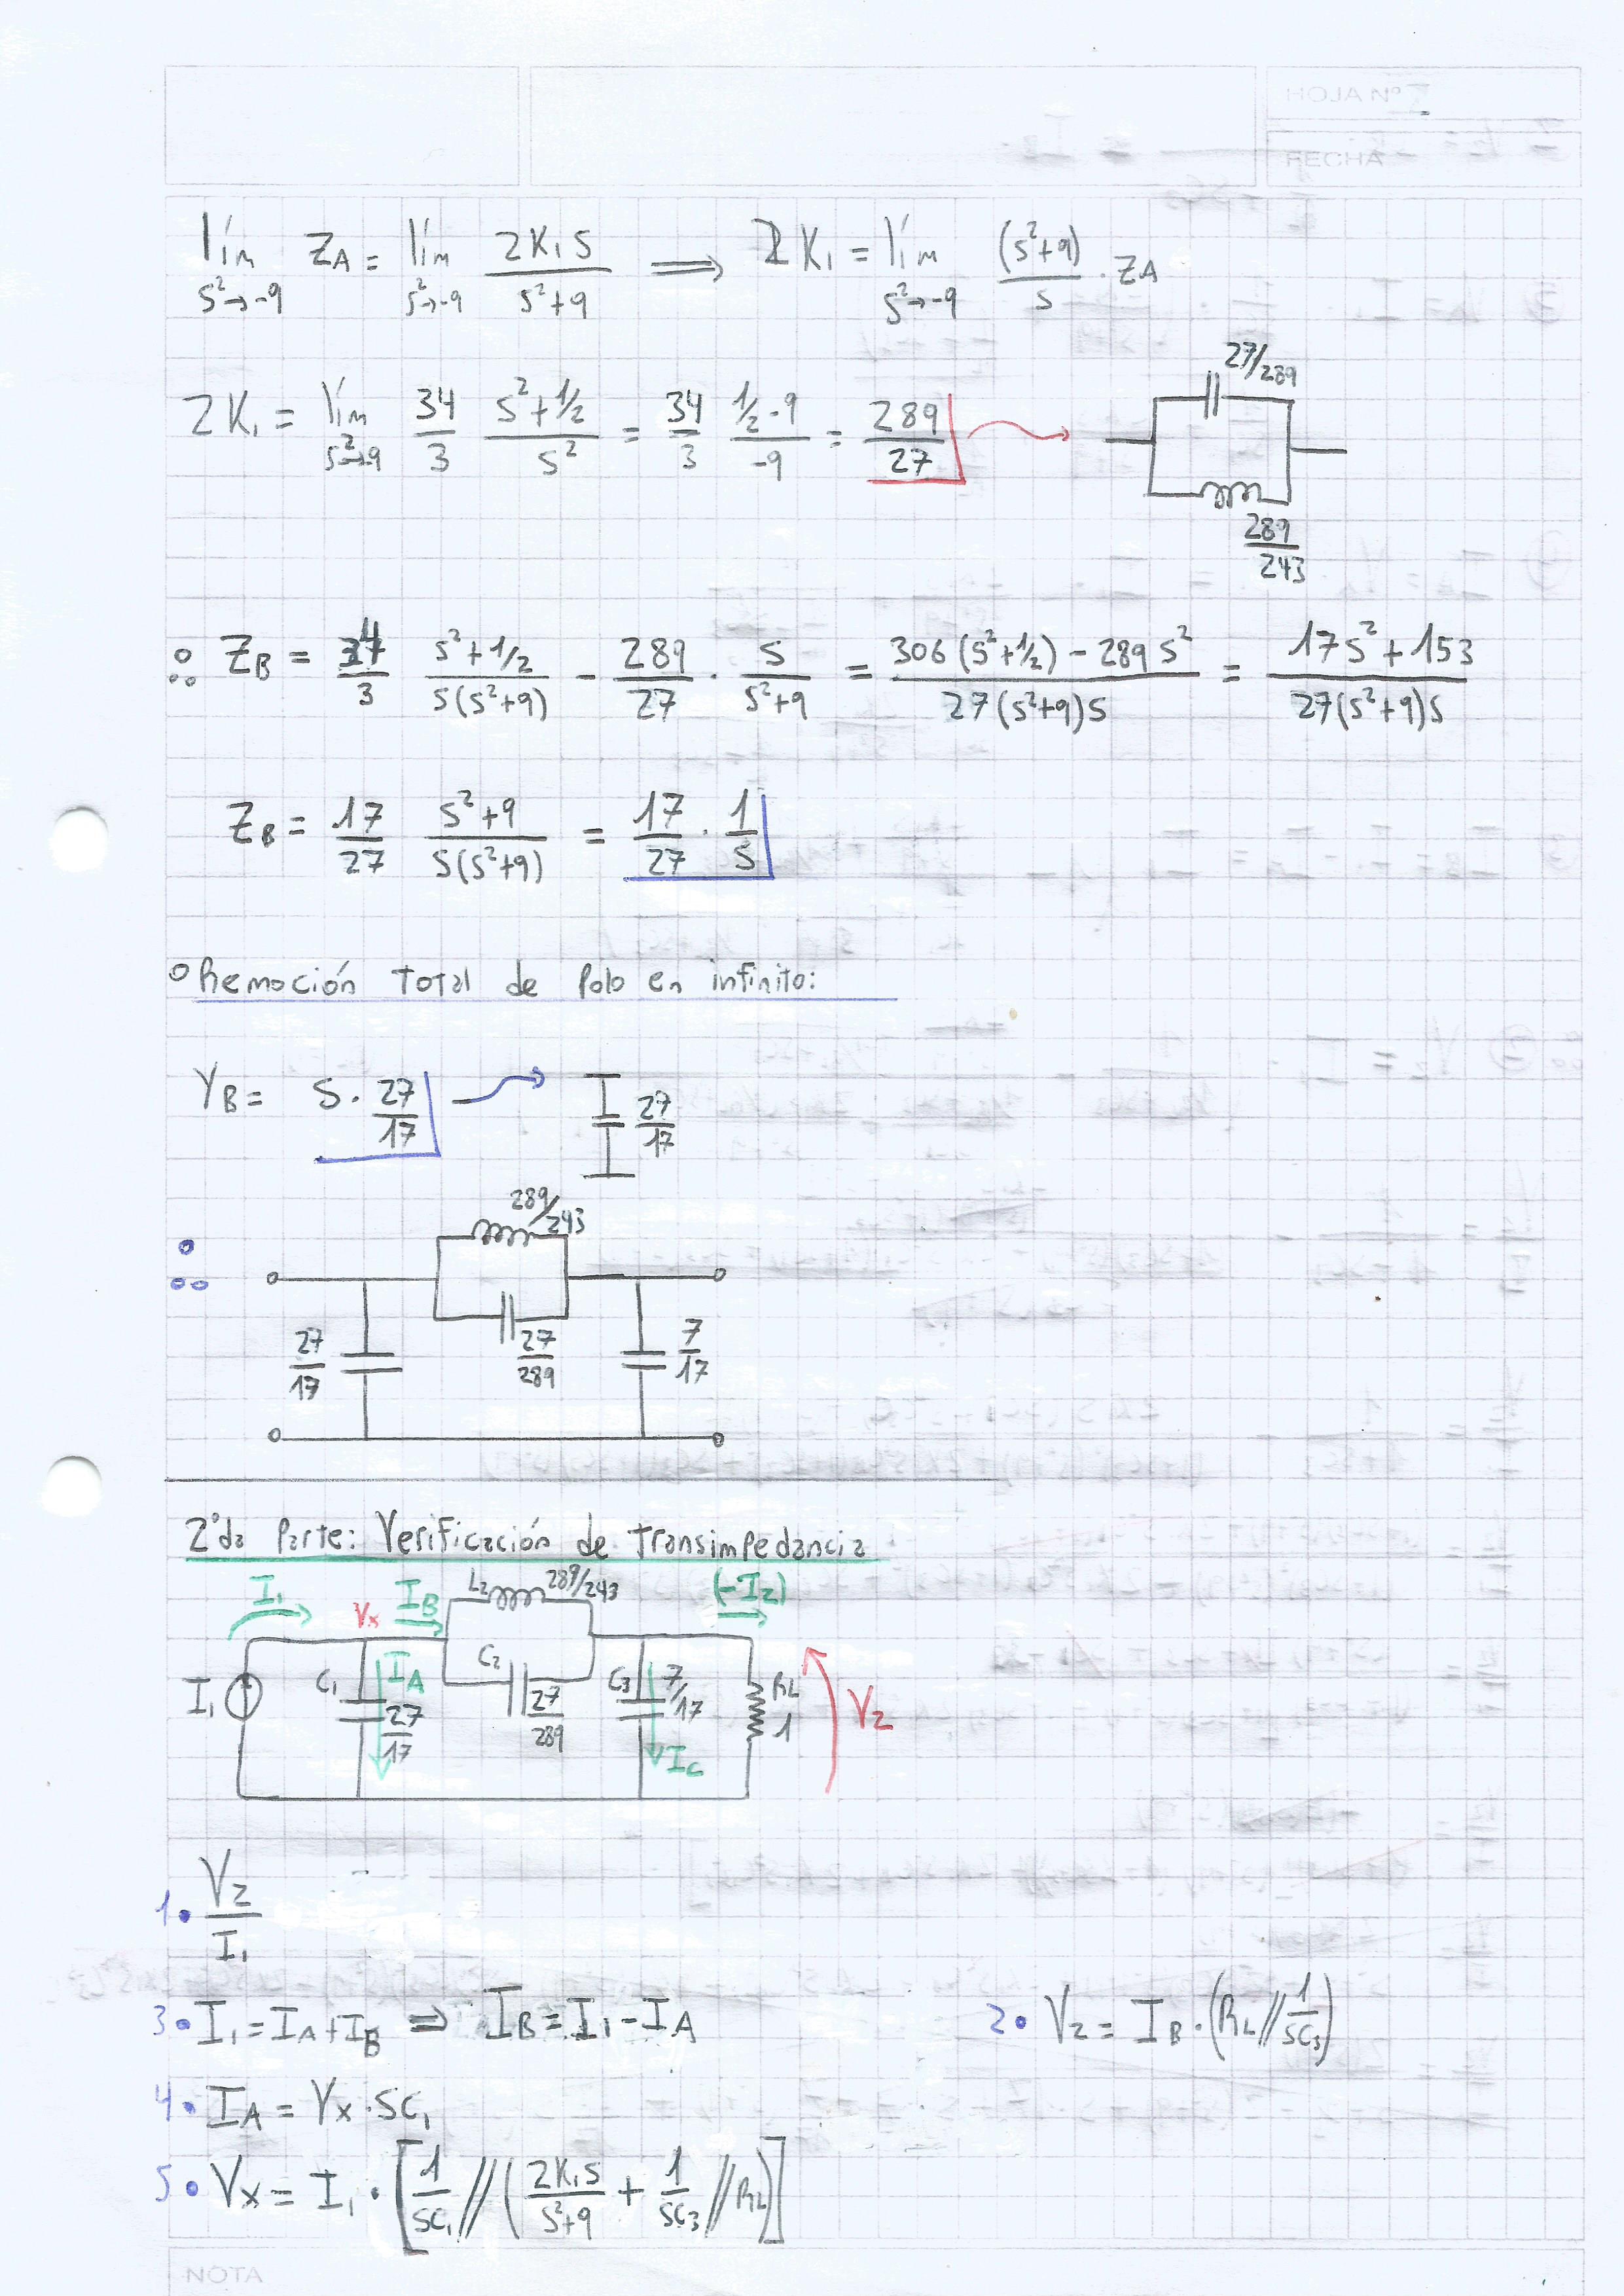 HOJA Nº
FECHA
lím_{s²→-9} Z_A = lím_{s²→-9} 2K₁s/(s²+9) ⟹ 2K₁ = lím_{s²→-9} (s²+9)/s · Z_A
27/289
2K₁ = lím_{s²→-9} 34/3 (s²+1/2)/s² = 34/3 (1/2-9)/-9 = 289/27
289/243
∴ Z_B = 34/3 (s²+1/2)/(s(s²+9)) - 289/27 · s/(s²+9) = (306(s²+1/2) - 289s²)/(27(s²+9)s) = (17s²+153)/(27(s²+9)s)
Z_B = 17/27 (s²+9)/(s(s²+9)) = 17/27 · 1/s
Remoción Total de Polo en infinito:
Y_B = s · 27/17
27/17
289/243
∴
27/17 27/289 7/17
2°da Parte: Verificación de Transimpedancia
I₁ Vx I_B L₂ 289/243 (-I₂)
I₁ C₁ I_A 27/17 C₂ 27/289 C₃ 7/17 I_C R_L 1 V₂
1• V₂/I₁
3• I₁ = I_A + I_B ⟹ I_B = I₁ - I_A
2• V₂ = I_B · (R_L // 1/sC₃)
4• I_A = Vx · sC₁
5• Vx = I₁ · [1/sC₁ // (2K₁s/(s²+9) + 1/sC₃ // R_L)]
NOTA